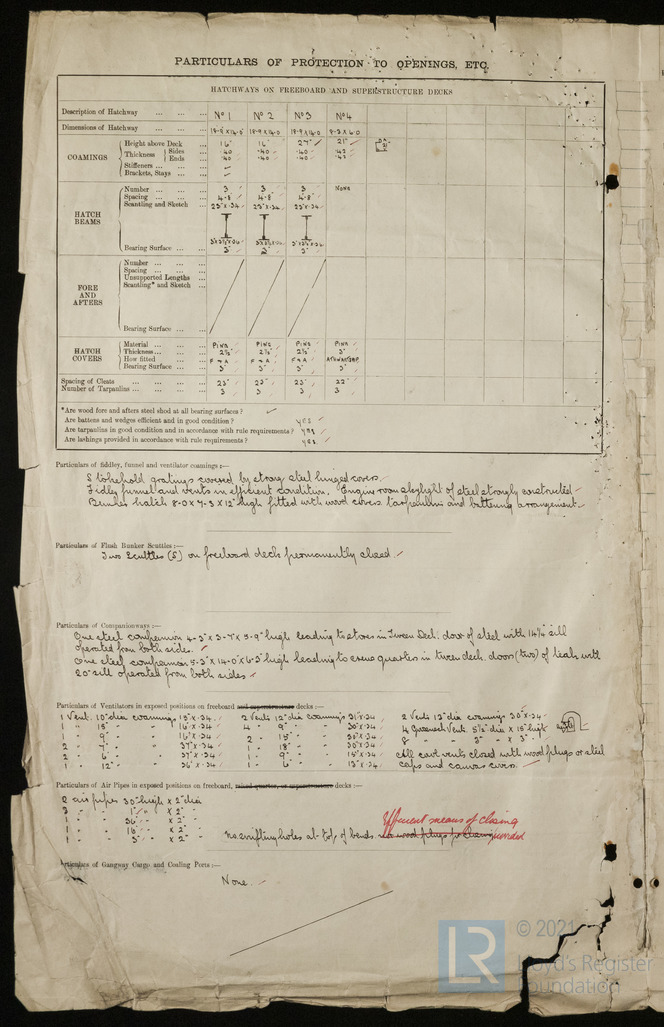 PARTICULARS OF PROTECTION TO OPENINGS, ETC.
HATCHWAYS ON FREEBOARD AND SUPERSTRUCTURE DECKS
Description of Hatchway ... ... ... No 1 No 2 No 3 No 4
Dimensions of Hatchway ... ... 18-9 x 14-0 18-9 x 14-0
COAMINGS
Height above Deck ... 16" 16" 27" 21"
Thickness Sides ... .40 .40 .40 .42
Ends ... .40 .40 .40 .42
Stiffeners ... ...
Brackets, Stays ... ...
HATCH BEAMS
Number ... ... ... 3 3 3 None
Spacing ... ... ... 4-8 4-8 4-8
Scantling and Sketch ... 23" x .34 23" x .34 23" x .34
Bearing Surface ... ... 3" 3" 3"
FORE AND AFTERS
Number ... ... ...
Spacing ... ... ...
Unsupported Lengths ...
Scantling* and Sketch ...
Bearing Surface ... ...
HATCH COVERS
Material ... ... ... PINE PINE PINE PINE
Thickness ... ... ... 2½" 2½" 2½" 3"
How fitted ... ... F & A F & A F & A ATHWARTSHIP
Bearing Surface ... ... 3" 3" 3" 3"
Spacing of Cleats ... ... ... ... 23" 23" 23" 22"
Number of Tarpaulins ... ... ... ... 3 3 3 3
*Are wood fore and afters steel shod at all bearing surfaces?
Are battens and wedges efficient and in good condition? yes
Are tarpaulins in good condition and in accordance with rule requirements? yes
Are lashings provided in accordance with rule requirements? yes
Particulars of fiddley, funnel and ventilator coamings :—
Stokehold gratings covered by strong steel hinged covers.
Fidley funnel and vents in efficient condition. Engine room skylight of steel strongly constructed
Bunker hatch 8-0 x 7-3 x 12" high fitted with wood covers tarpaulins and battening arrangement.
Particulars of Flush Bunker Scuttles :—
Two Scuttles (S) on freeboard deck permanently closed.
Particulars of Companionways :—
One steel companion 4-3" x 3-7" x 5-9" high leading to stores in Tween Deck. door of steel with 14¼" sill
operated from both sides.
One steel companion 5-3" x 14-0" x 6-3" high leading to crews quarters in tween deck. doors (two) of teak with
20" sill operated from both sides
Particulars of Ventilators in exposed positions on freeboard and superstructure decks :—
1 Vent. 10" dia coamings 2 Vents 12" dia coamings 2 Vents 12" dia coamings 30" x .34
All cowl vents closed with wood plugs or steel
caps and canvas covers.
Particulars of Air Pipes in exposed positions on freeboard, raised quarter, or superstructure decks :—
2 air pipes 30" high x 2" dia
x 2"
36" x 2"
18" x 2"
x 2"
Efficient means of closing
no snifting holes at top of bends. no wood plugs for closing provided
Particulars of Gangway Cargo and Coaling Ports :—
None.
LR
© 2021
Lloyd's Register
Foundation